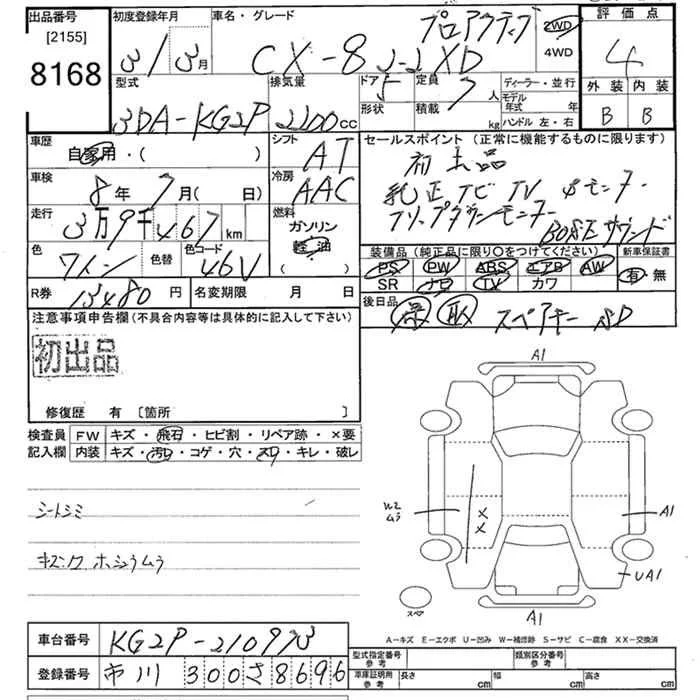 出品番号 [2155] 8168
初度登録年月 3/3月
車名・グレード プロアクティブ
CX-8 XD
2WD 4WD
評価点 4
外装 内装
B B
型式 3DA-KG2P
排気量 2200cc
ドア 5
形状
定員 7人
積載 kg
ディーラー・並行
モデル年式 年
ハンドル 左・右
車歴 自家用・( )
シフト AT
車検 8年7月( 日)
冷房 AAC
走行 3万9千467km
燃料 ガソリン 軽油 ( )
色 ワイン 色替 色コード 46V
セールスポイント(正常に機能するものに限ります)
初出品
純正ナビTV
フリップダウンモニター
BOSEサウンド
装備品(純正品に限り〇をつけてください) 新車保証書
PS PW ABS エアB AW 有・無
SR ナビ TV カワ
R券 13480円 名変期限 月 日
後日品 保 取 スペアキー SD
注意事項申告欄(不具合内容等は具体的に記入して下さい)
初出品
修復歴 有 [箇所 ]
検査員記入欄 FW キズ・飛石・ヒビ割・リペア跡・×要
内装 キズ・汚れ・コゲ・穴・スレ・キレ・破レ
シートシミ
A1
ムラ
××
A1
UA1
スペア
A1
A-キズ E-エクボ U-凹み W-補修跡 S-サビ C-腐食 XX-交換済
車台番号 KG2P-210973
登録番号 市川 300 さ 8696
型式指定番号 参考 類別区分番号 参考
車庫証明用 参考 長さ cm 幅 cm 高さ cm